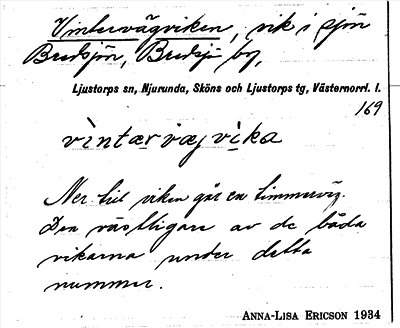 Vintervägviken, vik i sjön
Bredsjön, Bredsjö by,
Ljustorps sn, Njurunda, Sköns och Ljustorps tg, Västernorrl. l.
169
vìntærvæ̨gvìka
Ner till viken går en timmerväg.
Den västligare av de båda
vikarna under detta
nummer.
ANNA-LISA ERICSON 1934